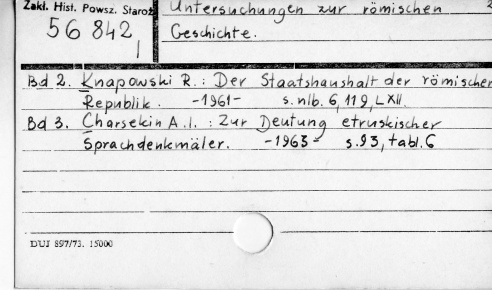 Zakł. Hist. Powsz. Staroż
56 842
1
Untersuchungen zur römischen
Geschichte.
Bd 2. Knapowski R.: Der Staatshaushalt der römischen
Republik. -1961- s. nlb. 6, 119, LXII.
Bd 3. Charsekin A.I.: Zur Deutung etruskischer
Sprachdenkmäler. -1963- s. 93, tabl. 6
DUJ 897/73. 15000